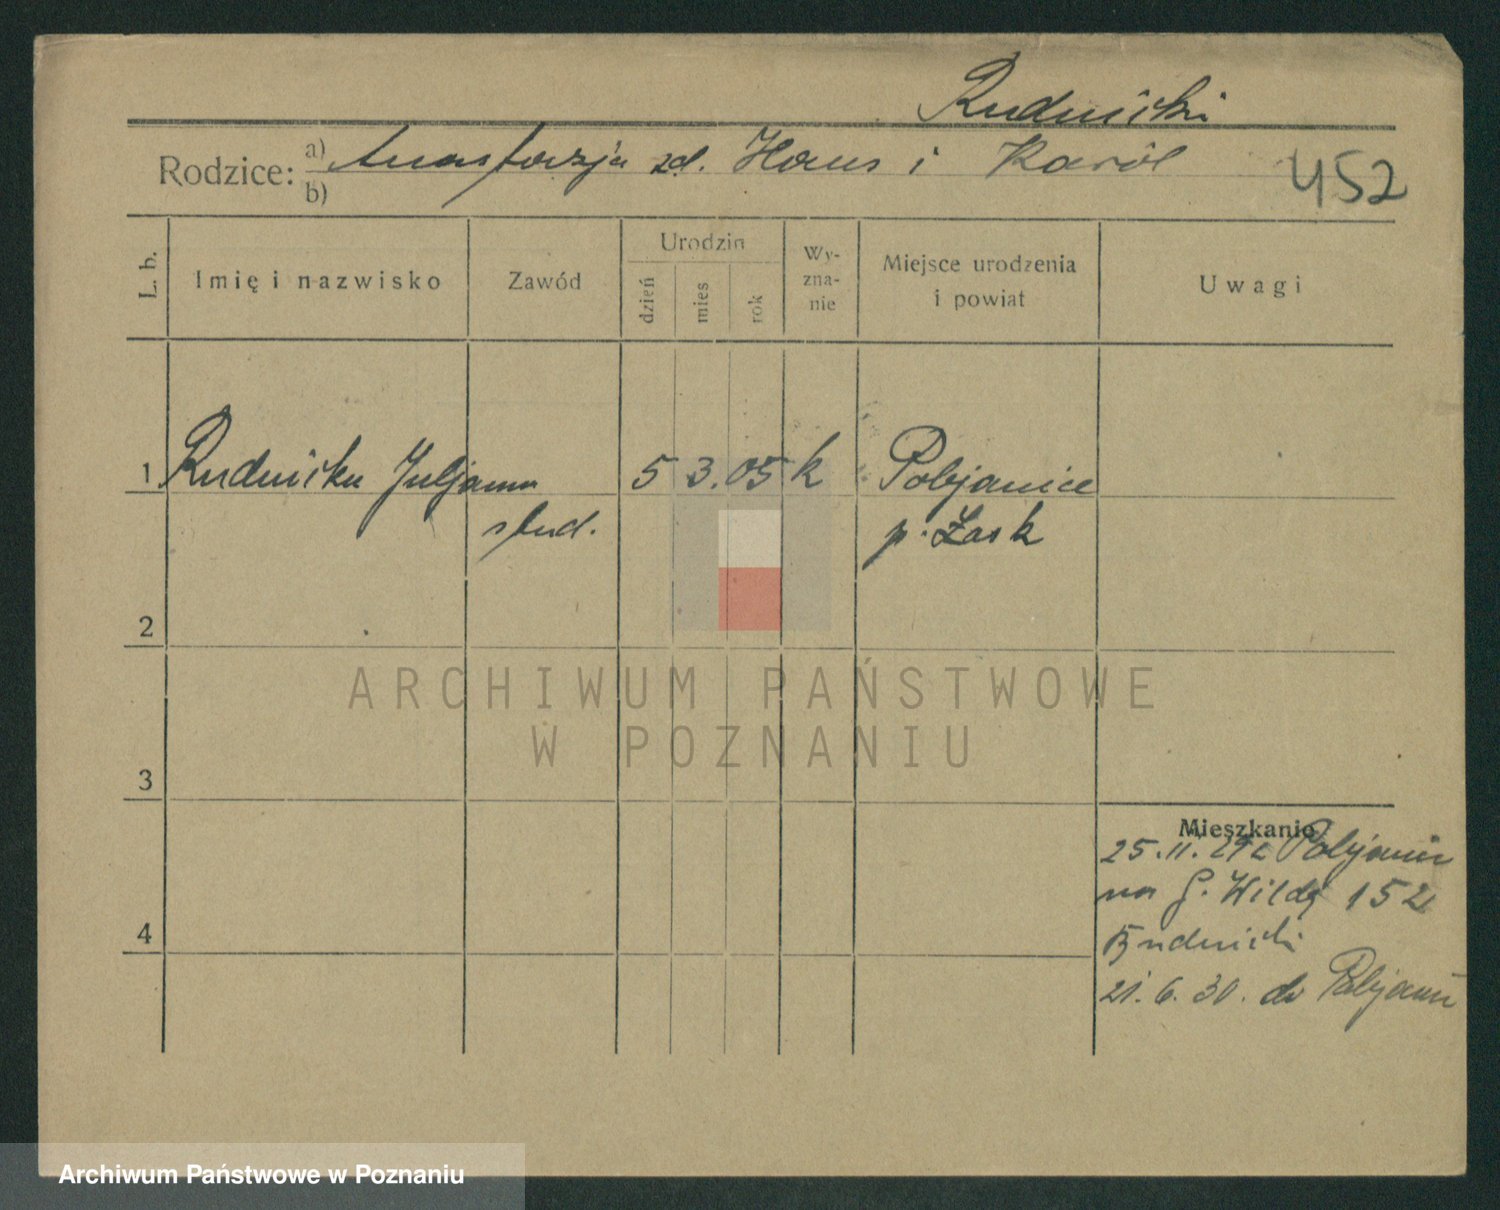 Rudnicki
Rodzice: a) Anastazja zd. Haus i Karól
b)
452
L. b.
Imię i nazwisko
Zawód
Urodzin
dzień
mies
rok
Wy-
zna-
nie
Miejsce urodzenia
i powiat
Uwagi
1 Rudnicka Juljanna 5 3. 05 k Pabjanice
stud. p. Łask
2
3
4
Mieszkanie
25.11.29 z Pabjanic
na G. Wildę 152
Rudnicki
21.6.30. do Pabjanic
ARCHIWUM PAŃSTWOWE
W POZNANIU
Archiwum Państwowe w Poznaniu